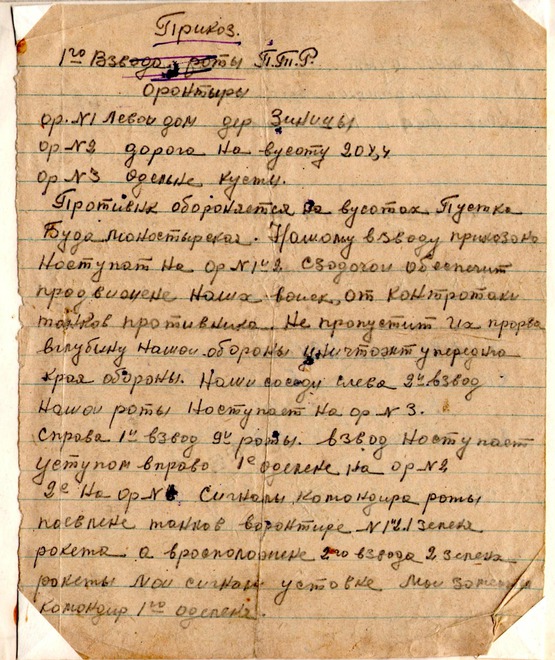 Прикоз.
1го Взвода роты П.Т.Р.
Оронтыры
ор. №1 Левои дом дер Зиницы
ор №2 дорога на вусоту 204,4
ор №3 оделне кусти.
Противик обороняется на вусотах Пустка
Буда моностырская. Нашому взводу прикозоно
Ноступат на ор №1и2 с задочои обеспечит
продвиžене наших воиск от контротаки
танков противника. Не пропустит их прорва
вглубину нашои обороны уничтожт у передно
края обороны. Наши соседу слева 2й взвод
нашои роты Ноступает на ор №3.
Справа 1й взвод 9й роты. взвод Ноступает
уступом вправо 1е оделене на ор №2
2е на ор № Сигналы командира роты
поевлене танков воронтире №1и2. 1 зелена
рокета а врасположене 2го взвода 2 зелена
рокеты мои сигнал уставке мои
командир 1го оделена.